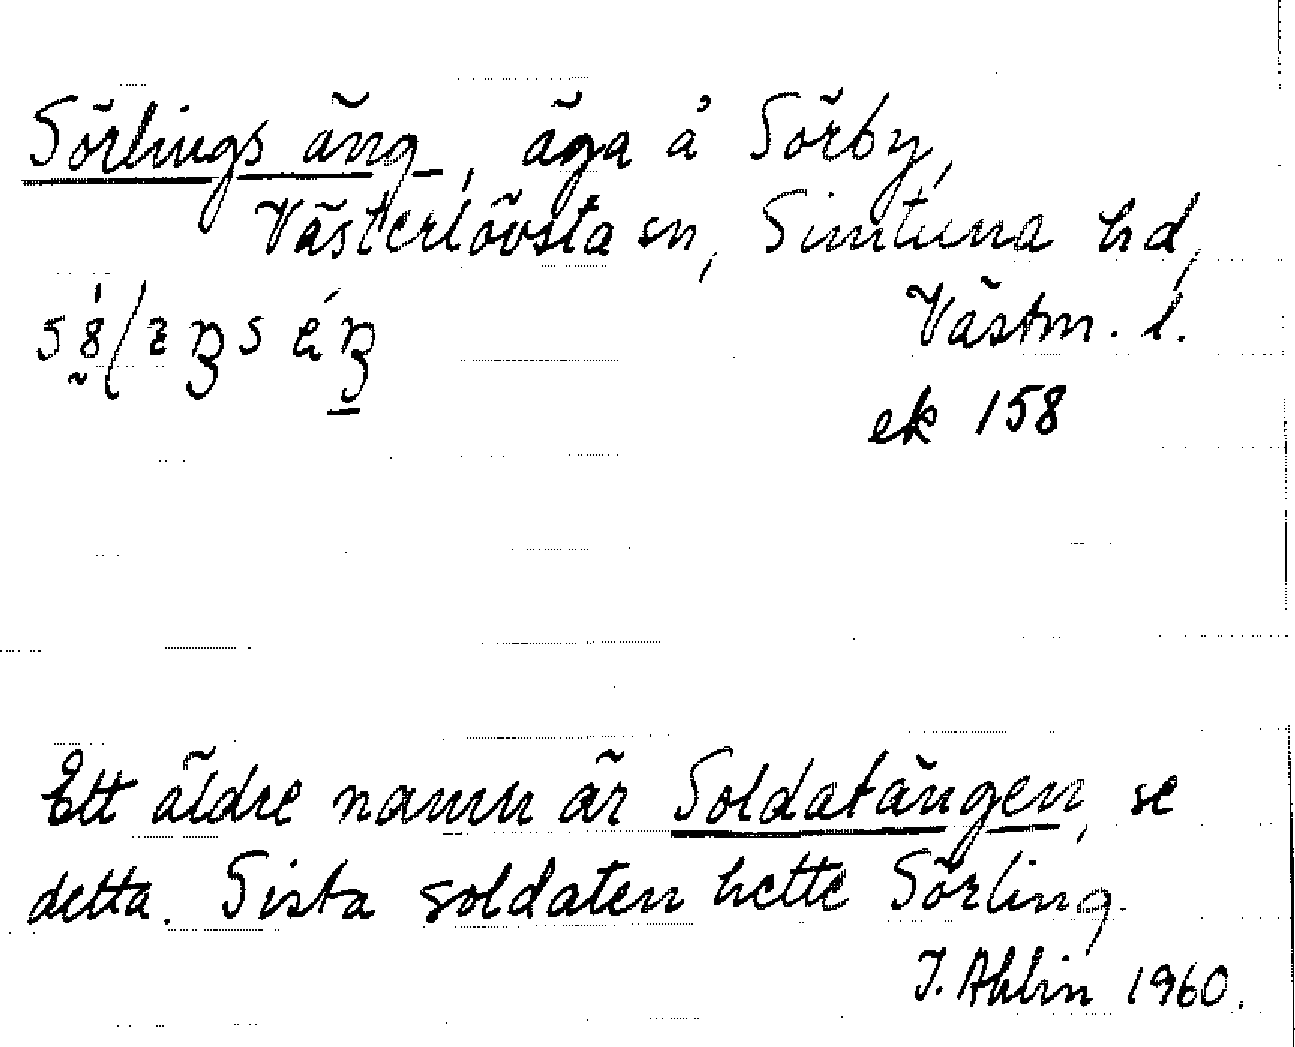 Sörlings äng, äga å Sörby,
Västerlövsta sn, Simtuna hd,
Västm. l.
ek 158
Ett äldre namn är Soldatängen, se
detta. Sista soldaten hette Sörling.
I. Ahlin 1960.